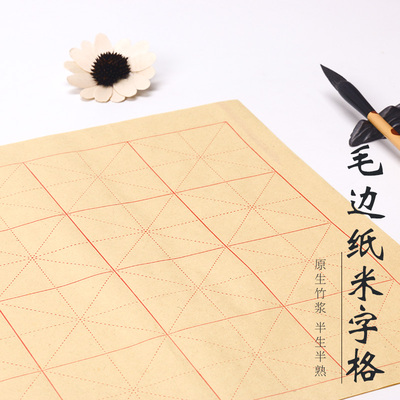 毛边纸米字格
原生竹浆 半生半熟